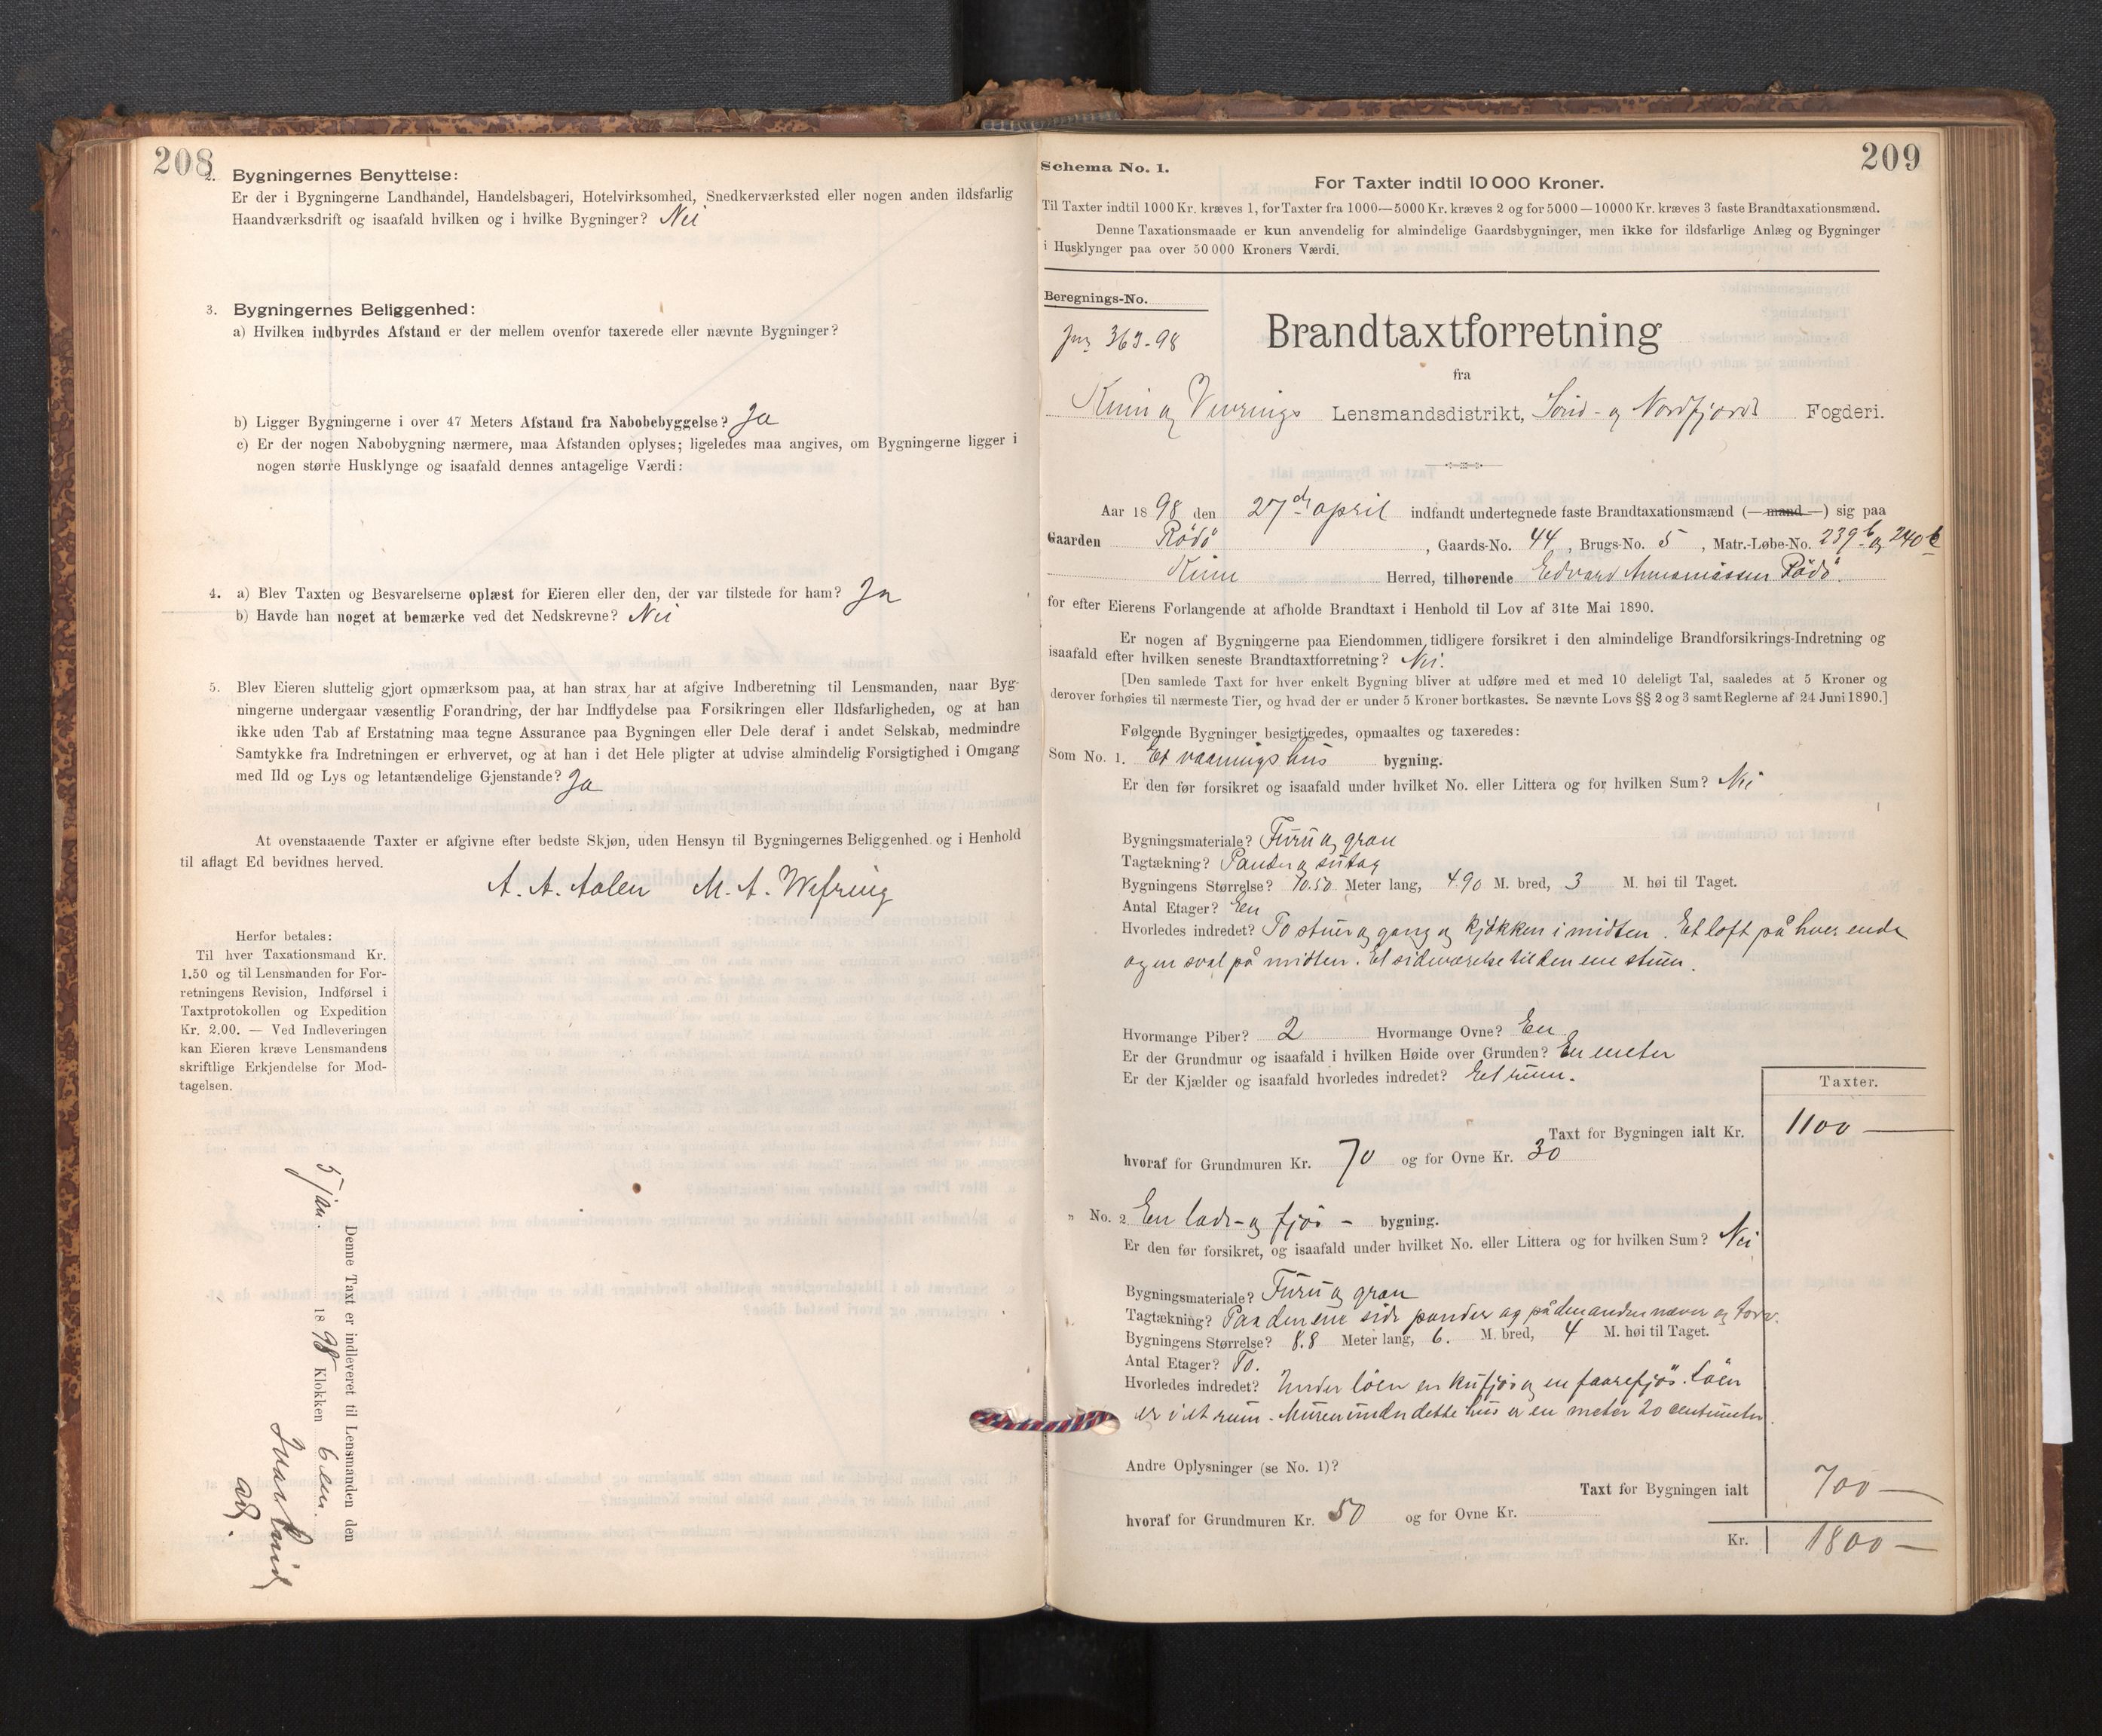 208
2. Bygningernes Benyttelse:
Er der i Bygningerne Landhandel, Handelsbageri, Hotelvirksomhed, Snedkerværksted eller nogen anden ildsfarlig
Haandværksdrift og isaafald hvilken og i hvilke Bygninger? Nei
3. Bygningernes Beliggenhed:
a) Hvilken indbyrdes Afstand er der mellem ovenfor taxerede eller nævnte Bygninger?
b) Ligger Bygningerne i over 47 Meters Afstand fra Nabobebyggelse? Ja
c) Er der nogen Nabobygning nærmere, maa Afstanden oplyses; ligeledes maa angives, om Bygningerne ligger i
nogen større Husklynge og isaafald dennes antagelige Værdi:
4. a) Blev Taxten og Besvarelserne oplæst for Eieren eller den, der var tilstede for ham? Ja
b) Havde han noget at bemærke ved det Nedskrevne? Nei
5. Blev Eieren sluttelig gjort opmærksom paa, at han strax har at afgive Indberetning til Lensmanden, naar Byg-
ningerne undergaar væsentlig Forandring, der har Indflydelse paa Forsikringen eller Ildsfarligheden, og at han
ikke uden Tab af Erstatning maa tegne Assurance paa Bygningen eller Dele deraf i andet Selskab, medmindre
Samtykke fra Indretningen er erhvervet, og at han i det Hele pligter at udvise almindelig Forsigtighed i Omgang
med Ild og Lys og letantændelige Gjenstande? Ja
At ovenstaaende Taxter er afgivne efter bedste Skjøn, uden Hensyn til Bygningernes Beliggenhed og i Henhold
til aflagt Ed bevidnes herved.
A. A. Aalen M. A. Wefring
Herfor betales:
Til hver Taxationsmand Kr.
1.50 og til Lensmanden for For-
retningens Revision, Indførsel i
Taxtprotokollen og Expedition
Kr. 2.00. — Ved Indleveringen
kan Eieren kræve Lensmandens
skriftlige Erkjendelse for Mod-
tagelsen.
Denne Taxt er indleveret til Lensmanden den
5 jan. 1898 Klokken 6 em.
adj.
209
Schema No. 1.
For Taxter indtil 10 000 Kroner.
Til Taxter indtil 1000 Kr. kræves 1, for Taxter fra 1000—5000 Kr. kræves 2 og for 5000—10000 Kr. kræves 3 faste Brandtaxationsmænd.
Denne Taxationsmaade er kun anvendelig for almindelige Gaardsbygninger, men ikke for ildsfarlige Anlæg og Bygninger
i Husklynger paa over 50 000 Kroners Værdi.
Beregnings-No.
Jnr 363-98
Brandtaxtforretning
fra
Kinn og Vevrings Lensmandsdistrikt, Sønd- og Nordfjords Fogderi.
Aar 1898 den 27de april indfandt undertegnede faste Brandtaxationsmænd (—mand—) sig paa
Gaarden Rødø, Gaards-No. 44, Brugs-No. 5, Matr.-Løbe-No. 239b og 240b
Kinn Herred, tilhørende Edvard Annaniassen Rødø.
for efter Eierens Forlangende at afholde Brandtaxt i Henhold til Lov af 31te Mai 1890.
Er nogen af Bygningerne paa Eiendommen tidligere forsikret i den almindelige Brandforsikrings-Indretning og
isaafald efter hvilken seneste Brandtaxtforretning? Nei.
[Den samlede Taxt for hver enkelt Bygning bliver at udføre med et med 10 deleligt Tal, saaledes at 5 Kroner og
derover forhøies til nærmeste Tier, og hvad der er under 5 Kroner bortkastes. Se nævnte Lovs §§ 2 og 3 samt Reglerne af 24 Juni 1890.]
Følgende Bygninger besigtigedes, opmaaltes og taxeredes:
Som No. 1. Et vaaningshus bygning.
Er den før forsikret og isaafald under hvilket No. eller Littera og for hvilken Sum? Nei
Bygningsmateriale? Furu og gran
Tagtækning? Pander og sutag
Bygningens Størrelse? 10.50 Meter lang, 4.90 M. bred, 3 M. høi til Taget.
Antal Etager? Een
Hvorledes indredet? To stuer og gang og kjøkken i midten. Et loft på hver ende
og en sval på midten. Et sideværelse til den ene stuen.
Hvormange Piber? 2 Hvormange Ovne? En
Er der Grundmur og isaafald i hvilken Høide over Grunden? En meter
Er der Kjælder og isaafald hvorledes indredet? Et rum.
Taxter.
Taxt for Bygningen ialt Kr. 1100 —
hvoraf for Grundmuren Kr. 70 og for Ovne Kr. 30
" No. 2 En lade- og fjøs- bygning.
Er den før forsikret, og isaafald under hvilket No. eller Littera og for hvilken Sum? Nei
Bygningsmateriale? Furu og gran
Tagtækning? Paa den ene side pander og på den anden næver og torv.
Bygningens Størrelse? 8.8 Meter lang, 6. M. bred, 4 M. høi til Taget.
Antal Etager? To.
Hvorledes indredet? Under løen en kufjøs og en faarefjøs. Løen
er i et rum. Muren under dette hus er en meter 20 centimeter.
Andre Oplysninger (se No. 1)?
Taxt for Bygningen ialt 700 —
hvoraf for Grundmuren Kr. 50 og for Ovne Kr.
Kr. 1800 —